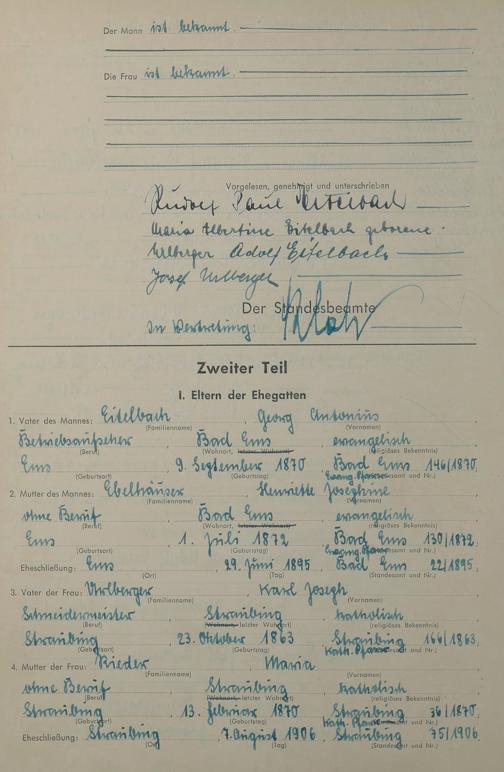 Der Mann ist bekannt.
Die Frau ist bekannt.
Vorgelesen, genehmigt und unterschrieben
Rudolf Paul Eitelbach
Maria Albertine Eitelbach geborene
Urlberger Adolf Eitelbach
Josef Urlberger
Der Standesbeamte
In Vertretung:
Zweiter Teil
I. Eltern der Ehegatten
1. Vater des Mannes: Eitelbach, Georg Antonius
(Familienname) (Vornamen)
Betriebsaufseher, Bad Ems, evangelisch
(Beruf) (Wohnort, letzter Wohnort) (religiöses Bekenntnis)
Ems, 9. September 1870, Bad Ems 146/1870,
Evang. Pfarramt
(Geburtsort) (Geburtstag) (Standesamt und Nr.)
2. Mutter des Mannes: Ebelhäuser, Henriette Josephine
(Familienname) (Vornamen)
ohne Beruf, Bad Ems, evangelisch
(Beruf) (Wohnort, letzter Wohnort) (religiöses Bekenntnis)
Ems, 1. Juli 1872, Bad Ems 130/1872,
(Geburtsort) (Geburtstag) Evang. Pfarramt (Standesamt und Nr.)
Eheschließung: Ems, 29. Juni 1895, Bad Ems 22/1895,
(Ort) (Tag) (Standesamt und Nr.)
3. Vater der Frau: Urlberger, Karl Joseph
(Familienname) (Vornamen)
Schneidermeister, Straubing, katholisch
(Beruf) (Wohnort, letzter Wohnort) (religiöses Bekenntnis)
Straubing, 23. Oktober 1863, Straubing 166/1863,
(Geburtsort) (Geburtstag) Kath. Pfarramt (Standesamt und Nr.)
4. Mutter der Frau: Rieder, Maria
(Familienname) (Vornamen)
ohne Beruf, Straubing, katholisch
(Beruf) (Wohnort, letzter Wohnort) (religiöses Bekenntnis)
Straubing, 13. Februar 1870, Straubing 36/1870,
(Geburtsort) (Geburtstag) Kath. Pfarramt (Standesamt und Nr.)
Eheschließung: Straubing, 7. August 1906, Straubing 75/1906
(Ort) (Tag) (Standesamt und Nr.)